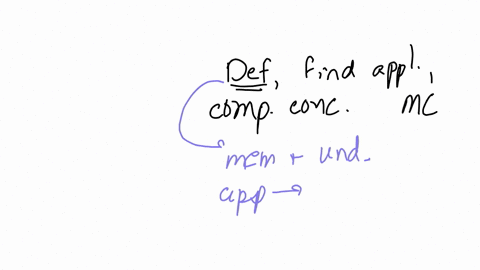 Def, find appl.,
comp. conc. MC
mem + und.
app →